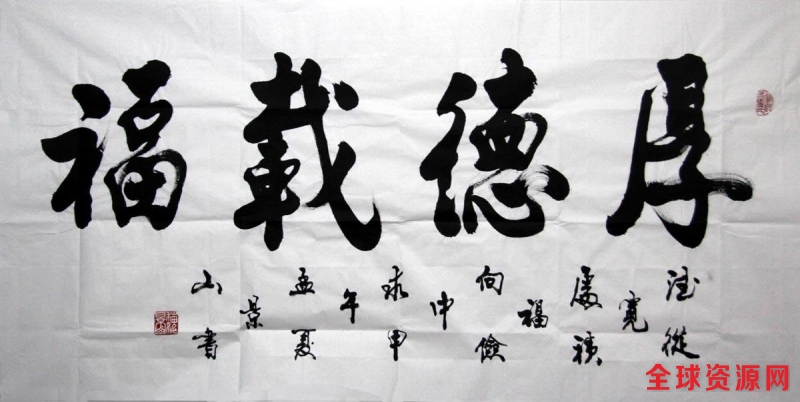 厚德載福
德從
寬
處積
福
向儉
中
求甲
午
孟夏
景
山書
全球资源网